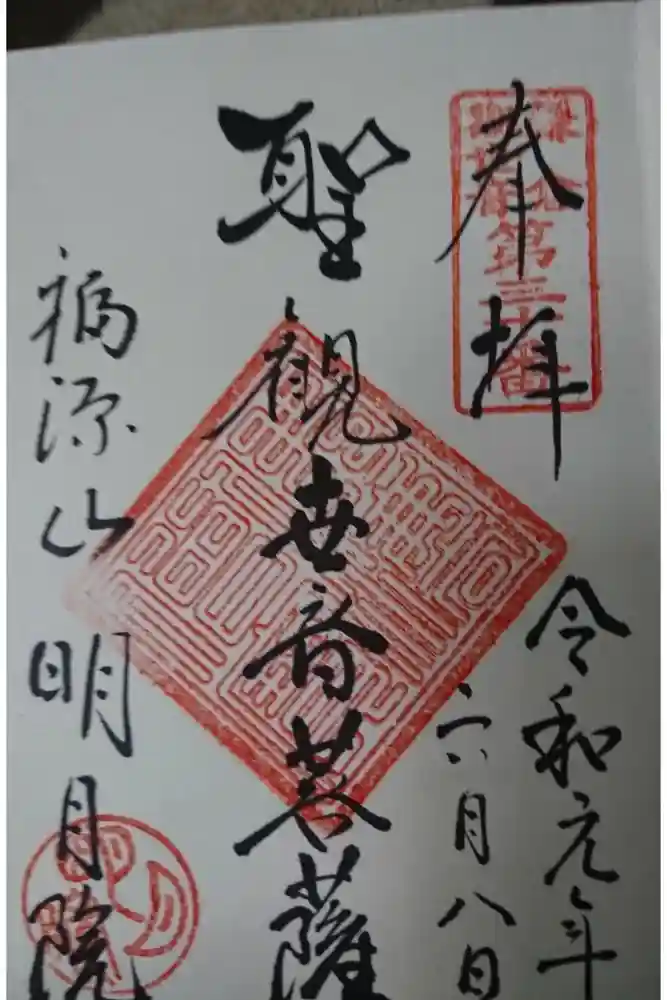 奉拝
鎌倉
第三十番
令和元年
六月八日
聖観世音菩薩
福源山明月院